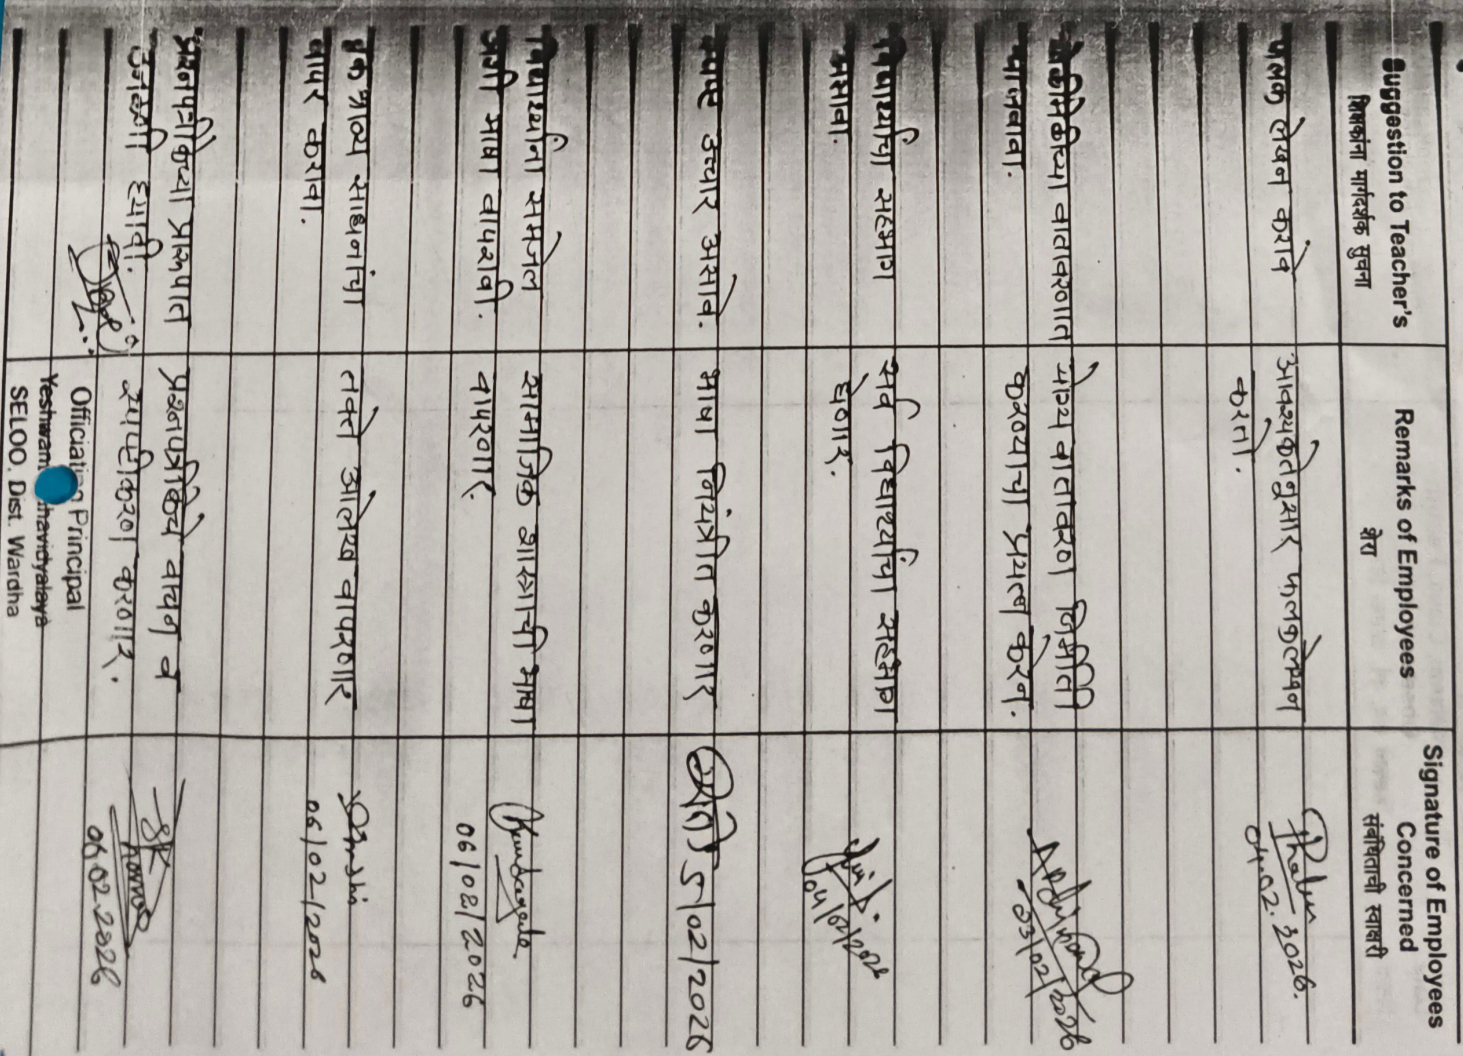 Suggestion to Teacher's
शिक्षकांना मार्गदर्शक सुचना
Remarks of Employees
शेरा
Signature of Employees
Concerned
संबंधिताची स्वाक्षरी
फलक लेखन करावे
आवश्यकतेनुसार फलकलेखन
करतो.
04.02.2026.
वातावरणात
योग्य वातावरण निर्मिती
करण्याचा प्रयत्न करेन.
03/02/2026
विद्यार्थ्यांचा सहभाग
असावा.
सर्व विद्यार्थ्यांचा सहभाग
घेणार.
04/02/2026
स्पष्ट उच्चार असावे.
भाषा नियंत्रीत करणार
5/02/2026
विद्यार्थ्यांना समजेल
अशी भाषा वापरावी.
सामाजिक शास्त्राची भाषा
वापरणार.
06/02/2026
दृक श्राव्य साधनांचा
वापर करावा.
तक्ते आलेख वापरणार
06/02/2026
प्रश्नपत्रीकेच्या प्रारूपात
उजळणी घ्यावी.
प्रश्नपत्रीकेचे वाचन व
स्पष्टीकरण करणार.
06.02.2026
Officiating Principal
SELOO, Dist. Wardha